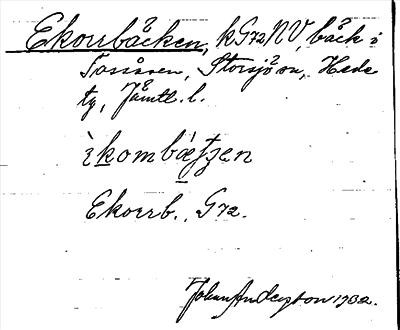 Ekorrbäcken, kG72NV, bäck i
Tossåsen, Storsjö sn, Hede
tg, Jämtl. l.
ìkombǽtʒen
Ekorrb., G72.
Johan Anderzton 1932.